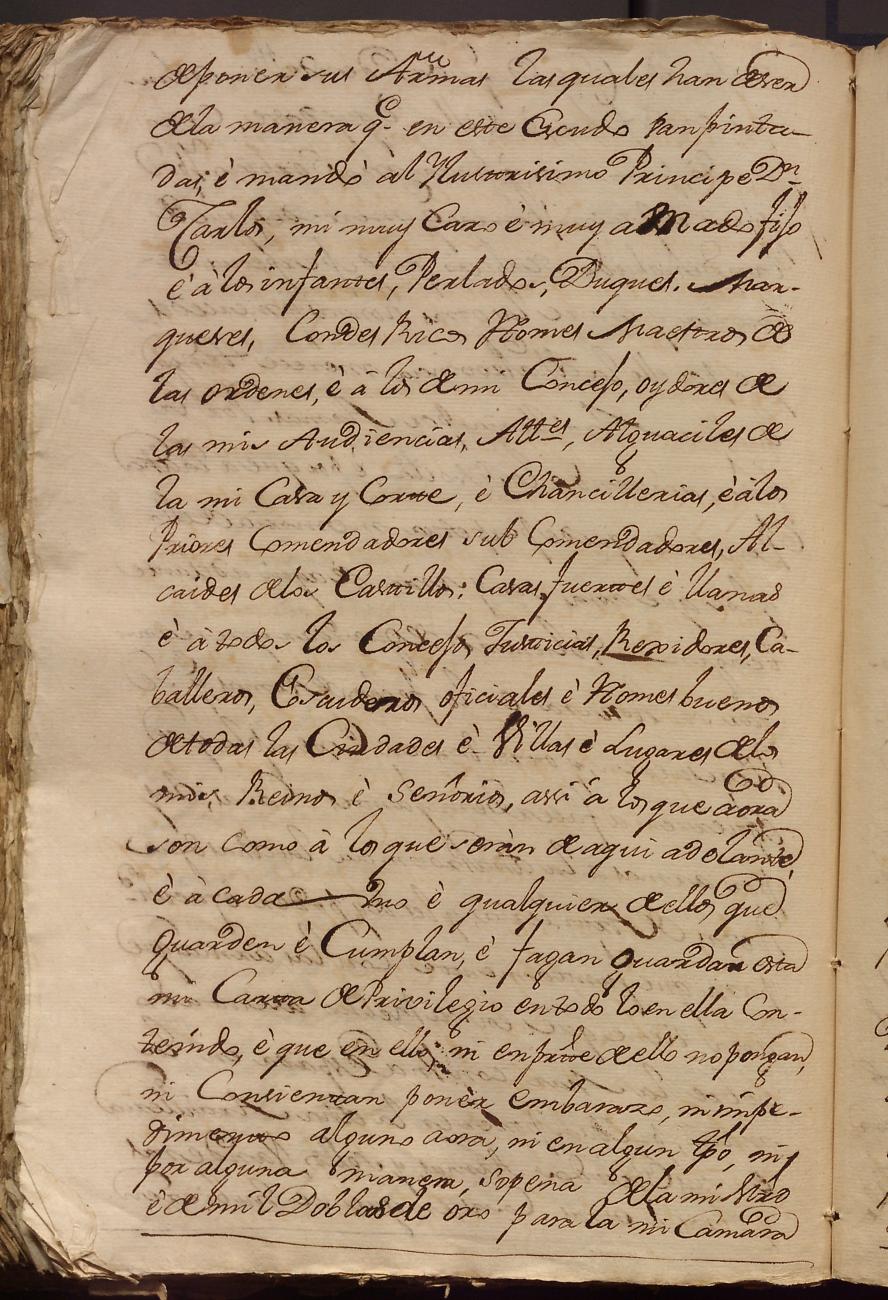 deponer sus Armas las quales han de ser
de la manera q.e en este Escudo van pinta-
das, è mandò àl Yllustrisimo Principe Dn.
Carlos, mi muy Caro è muy amado fijo
è à los infantes, Perlados, Duques. Mar-
queses, Condes Ricos Homes Maestros de
las ordenes, è à los de mi Concejo, oydores de
las mis Audiencias, Alles, Alguaciles de
la mi Casa y Corte, è Chancillerias, è à los
Priores Comendadores sub Comendadores, Al-
caides de los Castillos: Casas fuertes è llanas
è à todos los Concejos, Justicias, Rexidores, Ca-
balleros, Escuderos oficiales è Homes buenos
de todas las Ciudades è Villas è Lugares de los
mis Reinos è Señorios, assi à los que aora
son como à los que seràn de aqui adelante,
è à cada Uno è qualquier dellos que
Guarden è Cumplan, è fagan guardar esta
mi Carta de Privilegio en todo lo en ella Con-
tenido, è que en ello, ni en prte de ello no pongan,
ni Consientan ponèr embarazo, ni impe-
dimento alguno aora, ni en algun tpo, ni
por alguna manera, so pena de la mi Mrd
è de mil Doblas de oro para la mi Camara